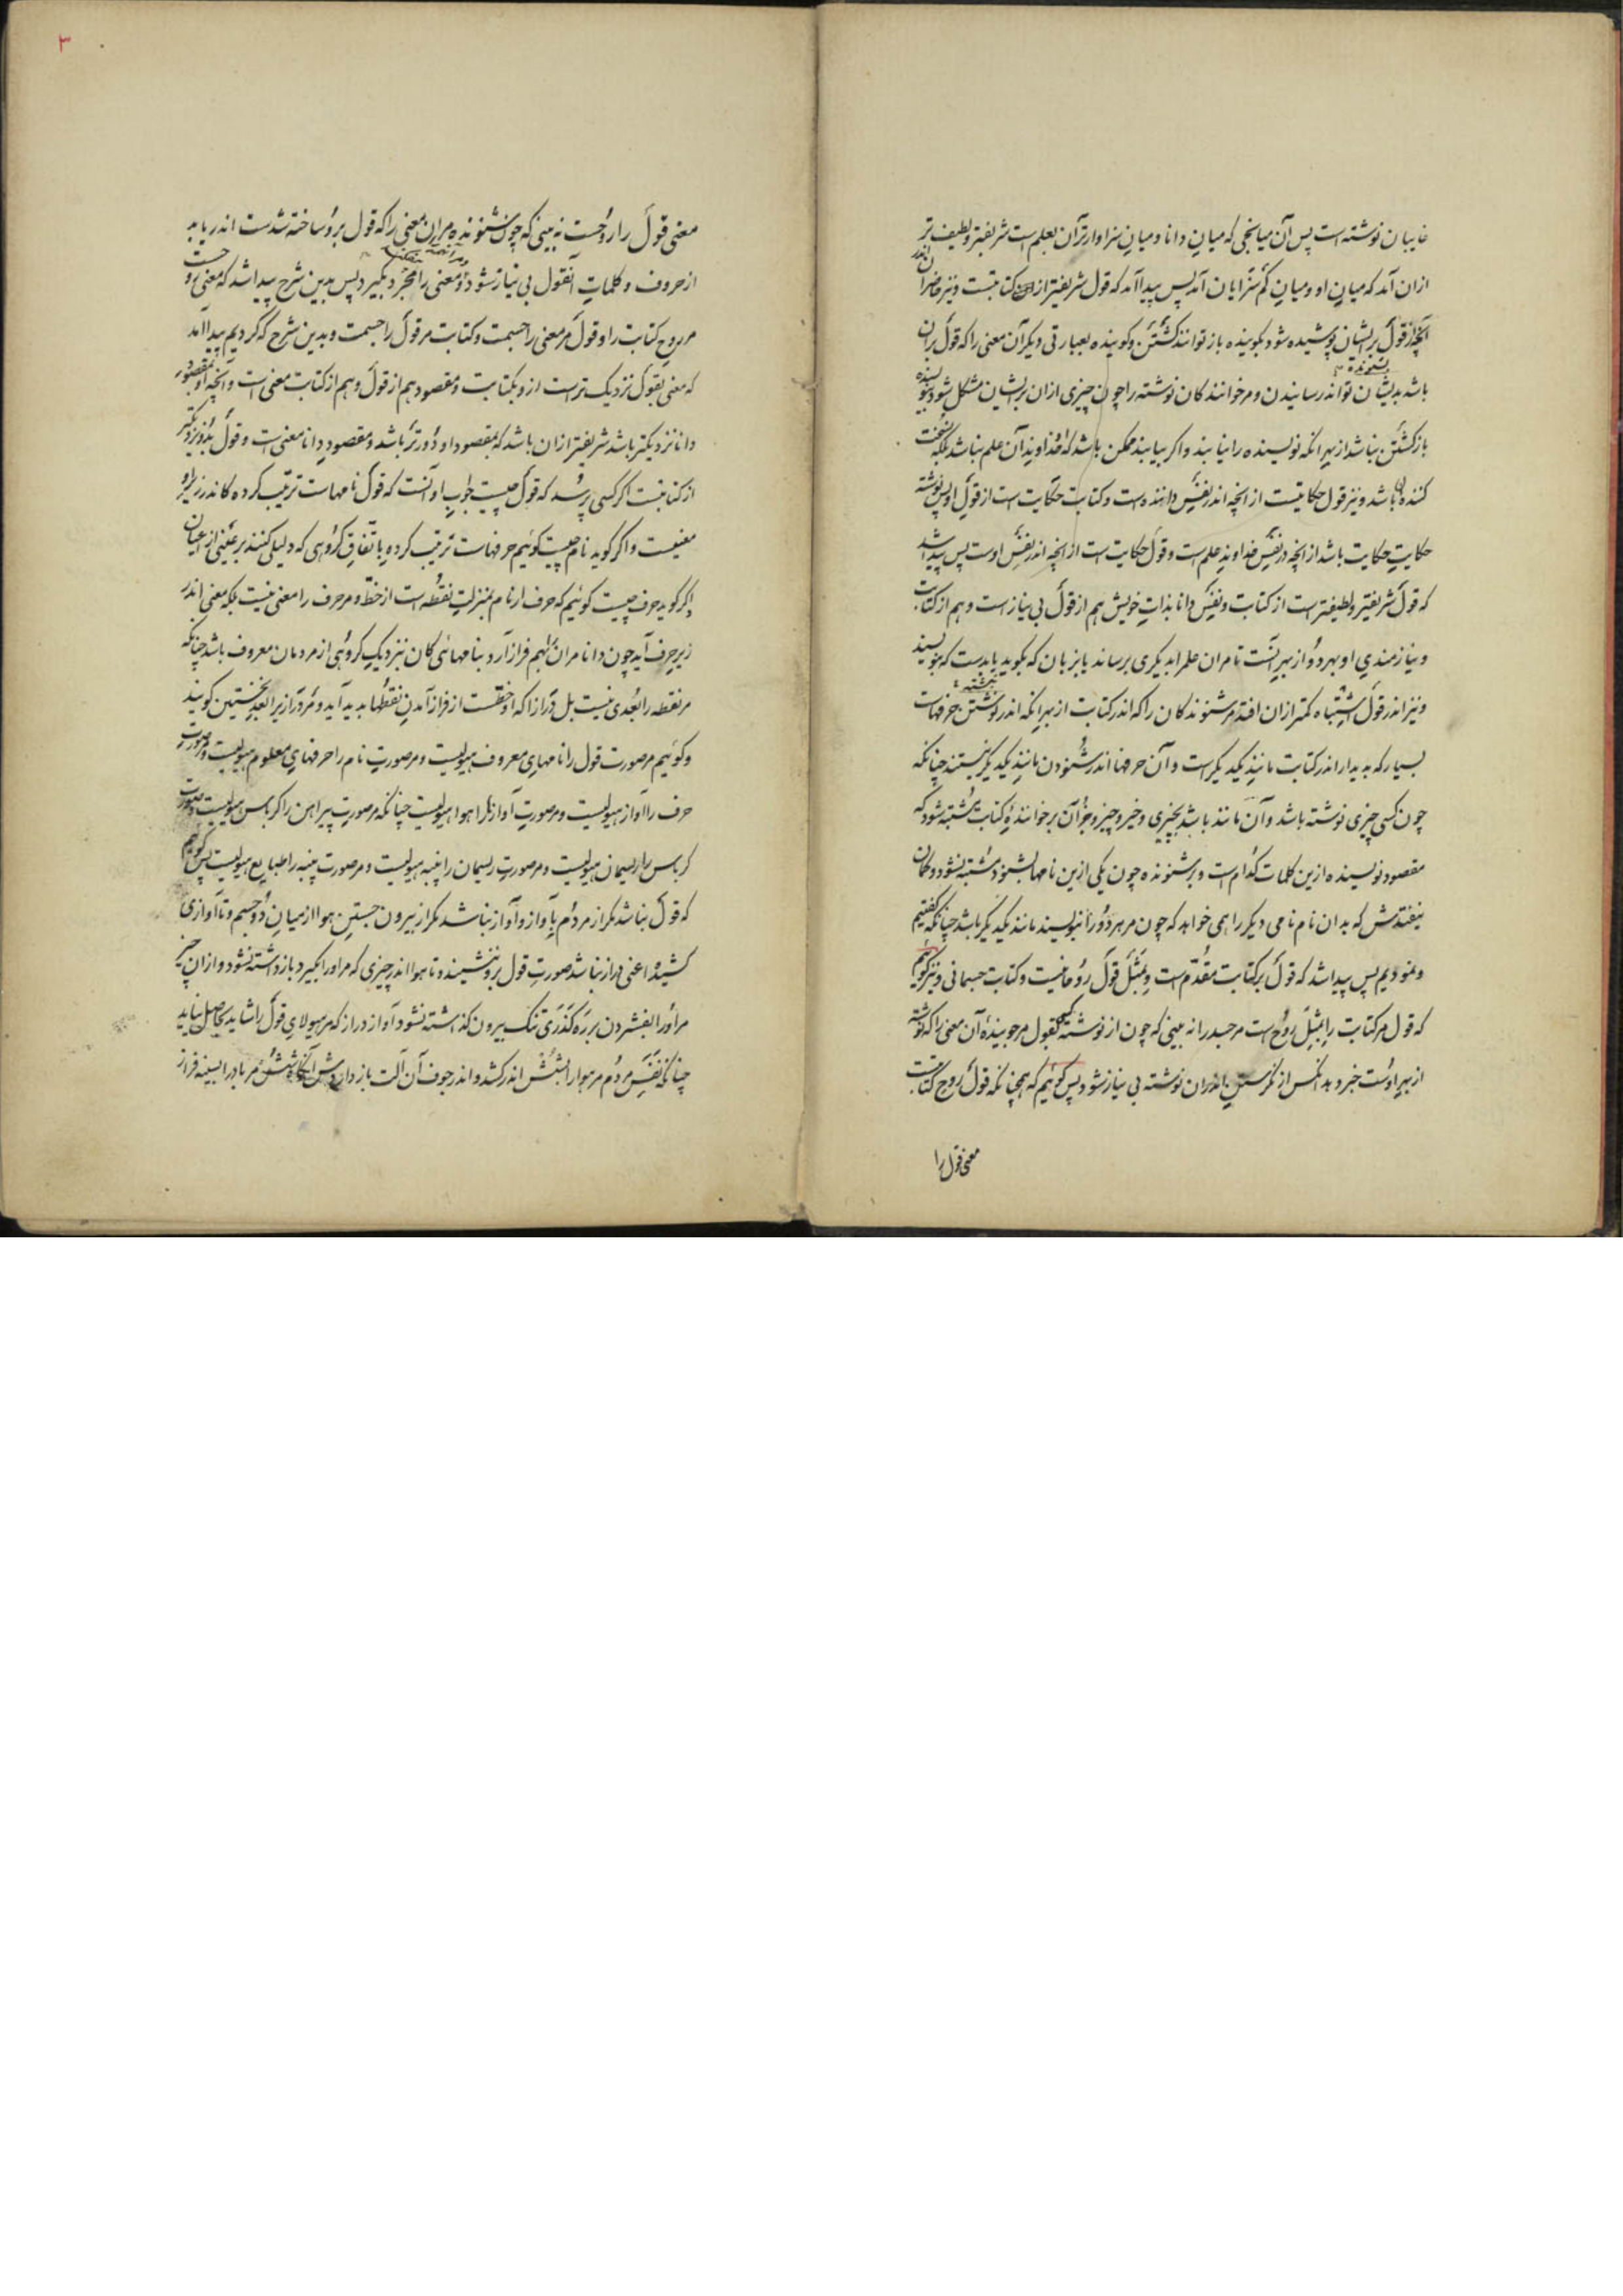 غایبان نوشته است پس آن میانجی که میانِ دانا و میانِ سزاوارتران بعلم است شریفتر و لطیف تر
ازان آمد که میانِ او و میانِ کم سزایان آمد پس پیدا آمد که قول شریفتر از کتابتست و نیز حاضرانرا اندر
آنچه از قول بر ایشان پوشیده شود بگوینده باز توانند گشتن و گوینده بعبارتی دیگر آن معنی را که قول بران
باشد بدیشان تواند رسانیدن و مر خوانندکان نوشته را چون چیزی ازان بر ایشان مشکل شود بنویسنده
باز گشتن نباشد از بهر آنکه نویسنده را نیابند و اگر بیابند ممکن باشد که خداوند آن علم نباشد بلکه نسخت
کننده باشد و نیز قول حکایتست از آنچه اندر نفسِ داننده است و کتابت حکایت است از قول او پس نوشته
حکایتِ حکایت باشد از آنچه در نفسِ خداوندِ علم است و قول حکایت است از آنچه اندر نفسِ اوست پس پیدا شد
که قول شریفتر و لطیفتر است از کتابت و نفس دانا بذاتِ خویش هم از قول بی نیاز است و هم از کتابت
و نیازمندیِ او بهر دو از بهر آنست تا مران علم را بدیگری برساند یا بزبان که بگوید یا بدست که بنویسد
و نیز اندر قول اشتباه کمتر ازان افتد مر شنوندکان را که اندر کتابت از بهر آنکه اندر نوشتن حرفهاست
بسیار که بدیدار اندر کتابت مانندِ یکدیگر است و آن حرفها اندر شنودن مانندِ یکدیگر نیستند چنانکه
چون کسی چیزی نوشته باشد و آن مانند باشد بچیزی و خیر و چیز و جز آن بر خوانندهٔ کتابت مشتبه شود که
مقصود نویسنده ازین کلمات کدام است و بر شنونده چون یکی ازین نامها بشنود مشتبه نشود و گمان
نیفتدش که بدان نام نامی دیگر را همی خواهد که چون مر هر دو را بنویسند مانند یکدیگر باشد چنانکه گفتیم
و نمودیم پس پیدا شد که قول بر کتابت مقدّم است و بمثل قول روحانیست و کتابت جسمانی و نیز گوئیم
که قول مر کتابت را بمثل روح است مر جسد را نه بینی که چون از نوشته بقول مر جوینده آن معنی را که نوشته
از بهر اوست خبر دهد آنکس از نگرستن اندران نوشته بی نیاز شود پس گوئیم که همچنانکه قول روح کتابت
معنی قول را
۳
معنی قول را روحست نه بینی که چون شنونده مر ان معنی را که قول برو ساخته شدست اندر یابد
از حروف و کلماتِ آنقول بی نیاز شود و معنی را مجرّد بگیرد پس بدین شرح پیدا شد که معنی روحست
مر روحِ کتابت را و قول مر معنی را جسمست و کتابت مر قول را جسمست و بدین شرح که کردیم پیدا آمد
که معنی بقول نزدیک تر است ازو بکتابت و مقصود هم از قول و هم از کتابت معنی است و آنچه او بمقصود
دانا نزدیکتر باشد شریفتر ازان باشد که بمقصود او دورتر باشد و مقصودِ دانا معنی است و قول بدو نزدیکتر
از کتابتست اگر کسی پرسد که قول چیست جوابِ او آنست که قول نامهاست ترتیب کرده کاندر زیر او
معنیست و اگر گوید نام چیست گوئیم حرفهاست ترتیب کرده باتّفاقِ گروهی که دلیلی کند بر عینی از اعیان
و اگر گوید حرف چیست گوئیم که حرف از نام بمنزلتِ نقطه است از خطّ و مر حرف را معنی نیست بلکه معنی اندر
زیرِ حرف آید چون دانا مران را بهم فراز آرد بنامهائی کان بنزدیکِ گروهی از مردمان معروف باشد چنانکه
مر نقطه را بُعدی نیست بل درازا که او خطّست از فراز آمدنِ نقطها پدید آید و مر درازا را بُعدِ نخستین گویند
و گوئیم مر صورت قول را نامهایِ معروف هیولیست و مر صورتِ نام را حرفهایِ معلوم هیولیست و مر صورت
حرف را آواز هیولیست و مر صورتِ آواز را هوا هیولیست چنانکه مر صورتِ پیراهن را کرباس هیولیست و مر صورت
کرباس را ریسمان هیولیست و مر صورت ریسمان را پنبه هیولیست و مر صورت پنبه را طبایع هیولیست پس گوئیم
که قول نباشد مگر از مردم بآواز و آواز نباشد مگر از بیرون جستنِ هوا از میانِ دو جسم و تا آوازی
کشیده اعنی دراز نباشد صورتِ قول برو ننشیند و تا هوا اندر چیزی که مر او را بگیرد بازداشته نشود و ازان چیز
مر او را بفشردن بر ره گذری تنگ بیرون گذاشته نشود آواز دراز که مر هیولایِ قول را شاید بحاصل نیاید
چنانکه نفسِ مردم مر هوا را بشُش اندر کشد و اندر جوف آن آلت باز داردش آنگاه شُش مر باد را بسینه فراز